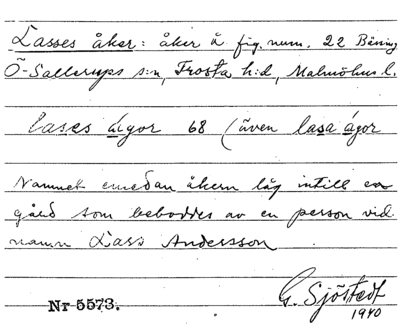 Lasses åker: åker å fig. num. 22 Bäning
Ö-Sallerups s:n, Frosta h:d, Malmöhus l.
lases ágor 68 (även lasa ágor
Namnet emedan åkern låg intill en
gård som beboddes av en person vid
namn Lars Andersson
G. Sjöstedt
Nr 5573.
1940